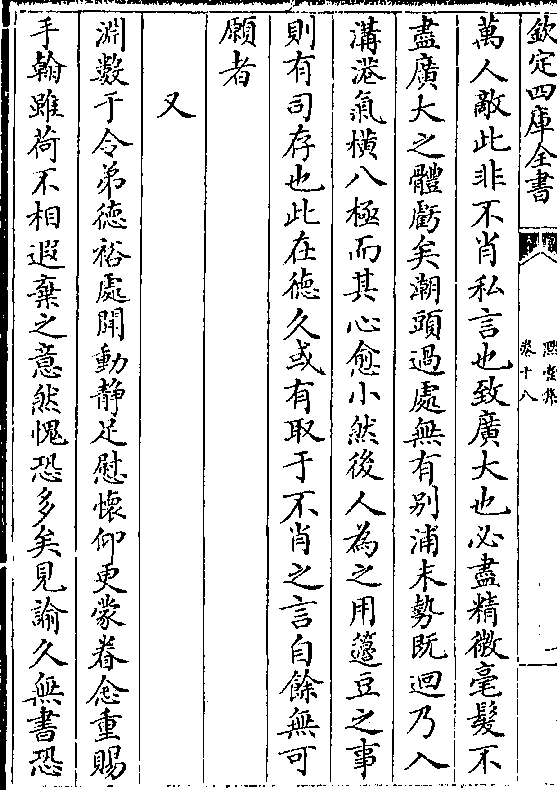 欽定四庫全書
卷十八
萬人敵此非不肖私言也致廣大也必盡精微毫髮不
盡廣大之體虧矣潮頭過處無有别浦末勢既迴乃入
溝港氣橫八極而其心愈小然後人為之用籩豆之事
則有司存也此在徳久或有取于不肖之言自餘無可
願者
又
淵數于令弟徳裕處聞動静足慰懷仰更蒙眷念重賜
手翰雖荷不相遐棄之意然愧恐多矣見諭久無書恐